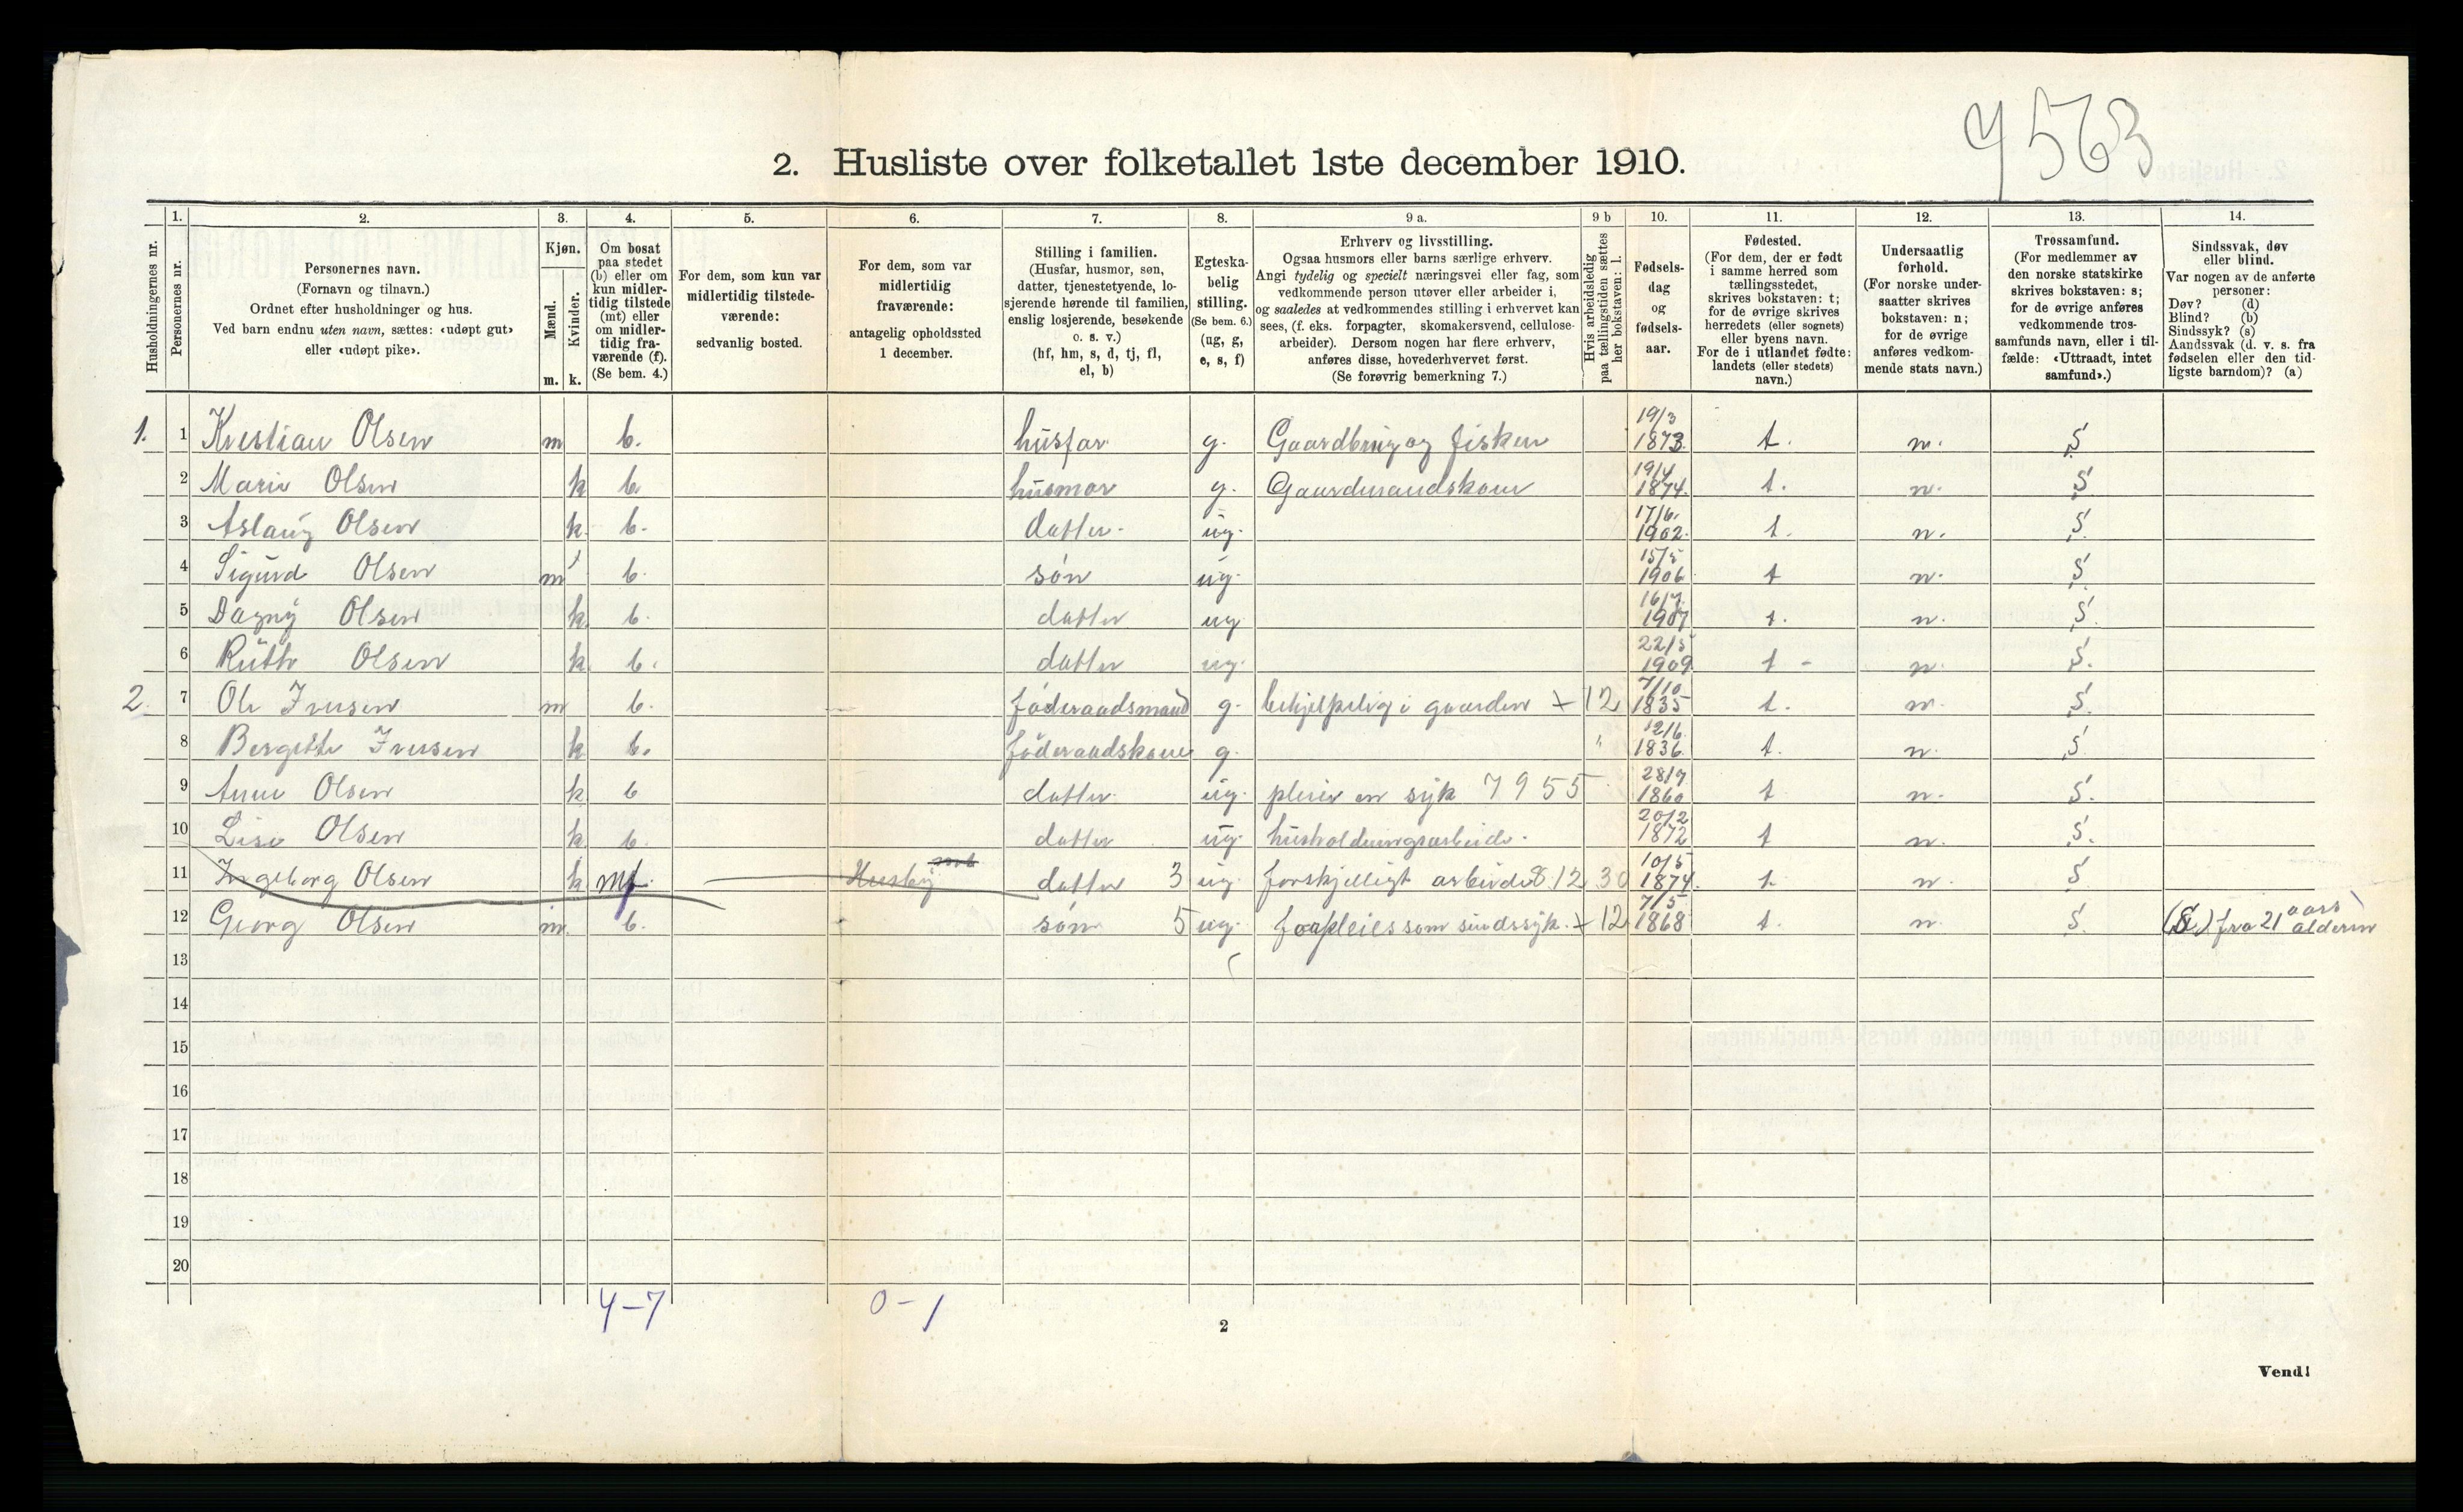 4563
2. Husliste over folketallet 1ste december 1910.
Husholdningernes nr.
1. Personernes nr.
2. Personernes navn. (Fornavn og tilnavn.) Ordnet efter husholdninger og hus. Ved barn endnu uten navn, sættes: «udøpt gut» eller «udøpt pike».
3. Kjøn. Mænd. m. Kvinder. k.
4. Om bosat paa stedet (b) eller om kun midlertidig tilstede (mt) eller om midlertidig fraværende (f). (Se bem. 4.)
5. For dem, som kun var midlertidig tilstedeværende: sedvanlig bosted.
6. For dem, som var midlertidig fraværende: antagelig opholdssted 1 december.
7. Stilling i familien. (Husfar, husmor, søn, datter, tjenestetyende, losjerende hørende til familien, enslig losjerende, besøkende o. s. v.) (hf, hm, s, d, tj, fl, el, b)
8. Egteskabelig stilling. (Se bem. 6.) (ug, g, e, s, f)
9 a. Erhverv og livsstilling. Ogsaa husmors eller barns særlige erhverv. Angi tydelig og specielt næringsvei eller fag, som vedkommende person utøver eller arbeider i, og saaledes at vedkommendes stilling i erhvervet kan sees, (f. eks. forpagter, skomakersvend, cellulosearbeider). Dersom nogen har flere erhverv, anføres disse, hovederhvervet først. (Se forøvrig bemerkning 7.)
9 b Hvis arbeidsledig paa tællingstiden sættes her bokstaven: l.
10. Fødselsdag og fødselsaar.
11. Fødested. (For dem, der er født i samme herred som tællingsstedet, skrives bokstaven: t; for de øvrige skrives herredets (eller sognets) eller byens navn. For de i utlandet fødte: landets (eller stedets) navn.)
12. Undersaatlig forhold. (For norske undersaatter skrives bokstaven: n; for de øvrige anføres vedkommende stats navn.)
13. Trossamfund. (For medlemmer av den norske statskirke skrives bokstaven: s; for de øvrige anføres vedkommende trossamfunds navn, eller i tilfælde: «Uttraadt, intet samfund».)
14. Sindssvak, døv eller blind. Var nogen av de anførte personer: Døv? (d) Blind? (b) Sindssyk? (s) Aandssvak (d. v. s. fra fødselen eller den tidligste barndom)? (a)
1. 1 Kristian Olsen m b. husfar g. Gaardbrug og fisker 19/3 1873. t. n. S
2 Marie Olsen k b husmor g. Gaardmandskone 19/4 1874. t. n. S
3 Aslaug Olsen k. b. datter. ug. 17/6. 1902. t. n. S.
4 Sigurd Olsen m b. søn ug. 15/5 1906. t n. S.
5 Dagny Olsen k. b. datter ug 16/7. 1907 t. n. S.
6 Ruth Olsen k. b. datter ug. 22/5 1909. t - n. S.
2. 7 Ole Iversen m b. føderaadsmand g. behjelpelig i gaarden + 12 7/10 1835 t. n. S.
8 Bergitte Iversen k b. føderaadskone g. " 12/6. 1836. t. n. S.
9 Anne Olsen k b datter. ug. pleier en syk 7955 28/7 1860 t n. S.
10 Lise Olsen k. b. datter ug. husholdningsarbeide. 20/2 1872 t n. S.
11 Ingeborg Olsen k mt. Husby datter 3 ug. forskjelligt arbeide 8.12 30 10/5 1874. t. n. S
12 Georg Olsen m. b. søn 5 ug. forpleies som sindssyk. + 12 7/5 1868 t. n. S. (S) fra 21 aars alderen
13
14
15
16
17
18
19
20
4-7 0-1
2
Vend!